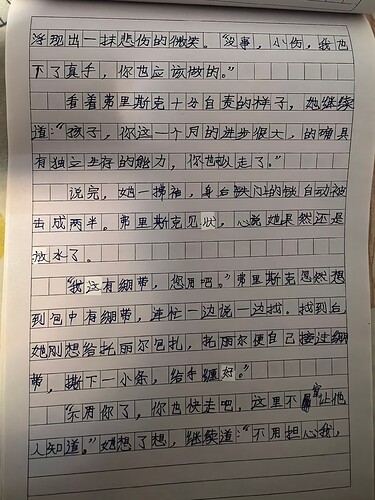 浮现出一抹悲伤的微笑。“没事，小伤，我也
下了真手，你也应该做的。”
看着弗里斯克十分自责的样子，她继续
道：“孩子，你这一个月的进步很大，的确具
有独立生存的能力，你也以走了。”
说完，她一拂袖，身后铁门上的锁自动被
击成两半。弗里斯克见状，心说她果然还是
放水了。
“我这有绷带，您用吧。”弗里斯克忽然想
到包中有绷带，连忙一边说一边找。找到后，
她刚想给托丽尔包扎，托丽尔便自己接过绷
带，撕下一小条，给手缠好。”
“不用你了，你也快走吧，这里不宜让他
人知道。”她想了想，继续道：“不用担心我，